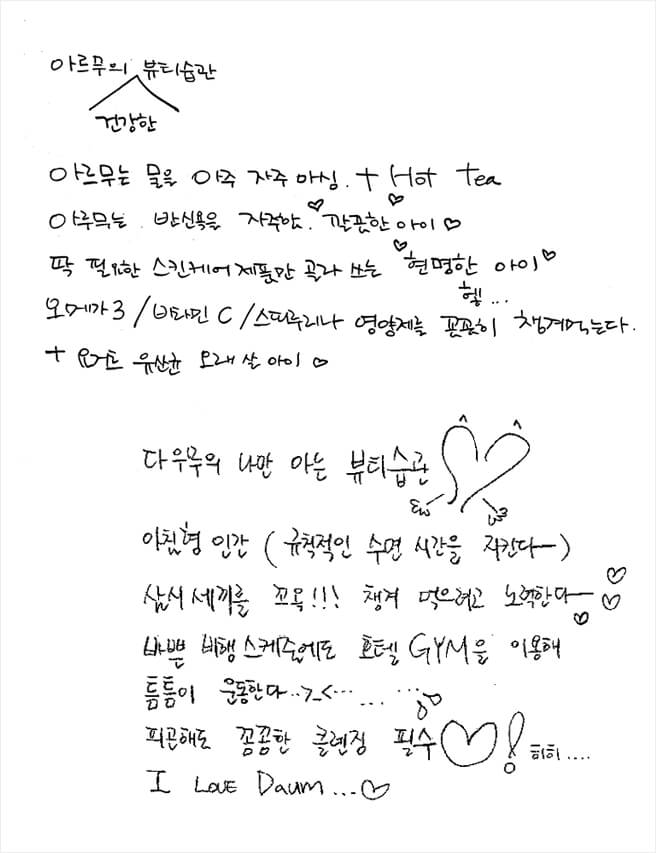 아르무의 뷰티습관
건강한
아르무는 물을 아주 자주 마심. + Hot tea
아루무는 반신욕을 자주하는 깔끔한 아이♡
딱 필요한 스킨케어 제품만 골라 쓰는 현명한 아이♡
헿...
오메가3 / 비타민 C / 스피루리나 영양제를 꼰꼰히 챙겨먹는다.
+ 요거트 유산균 오래 살 아이 ♡
다우무의 나만 아는 뷰티습관
아침형 인간 ( 규칙적인 수면 시간을 지킨다ㅡ)
삼시세끼를 꼬옥!!! 챙겨 먹으려고 노력한다ㅡ♡
바쁜 비행 스케줄에도 호텔 GYM을 이용해
틈틈이 운동한다..>_<... ... ...♪
피곤해도 꼼꼼한 클렌징 필수♡! 히히....
I LOVE Daum...♡